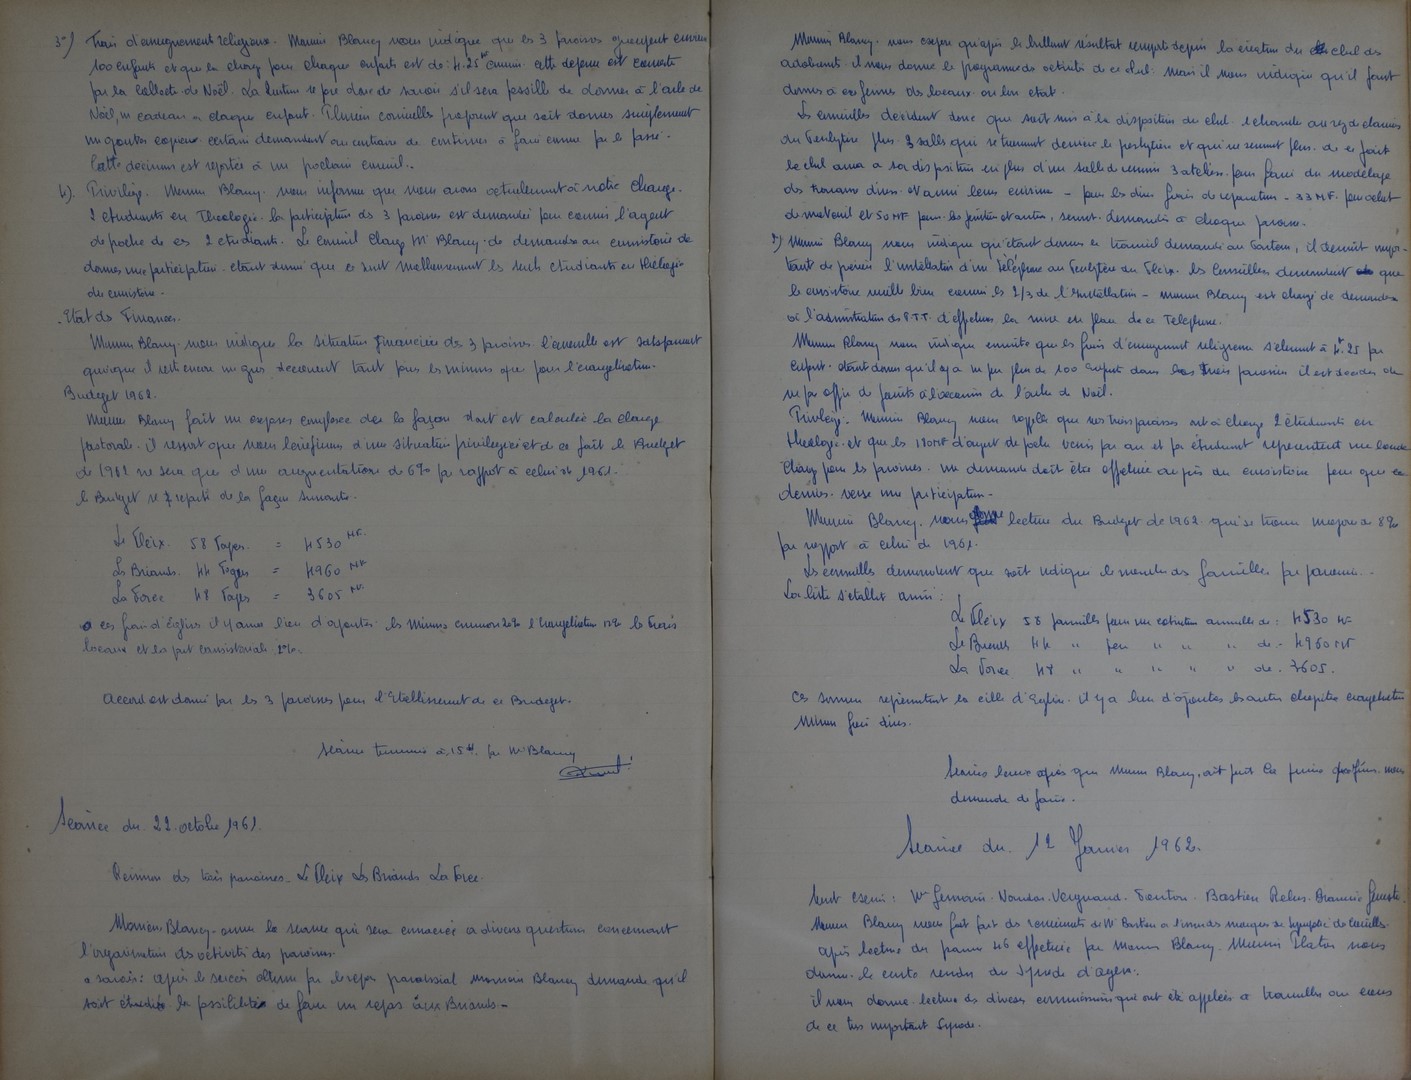 3°) Frais d'enseignement religieux. Monsieur Blancy nous indique que les 3 paroisses groupent environ
100 enfants et que la charge pour chaque enfant est de : 4.25 NF environ. cette depense est couverte
par la collecte de Noël. La question se pose donc de savoir s'il sera possible de donner à l'arbre de
Noël, un cadeau a chaque enfant. Plusieurs conseillers proposent que soit donner simplement
un gouter copieux. certains demandent au contraire de continuer à faire comme par le passé.
Cette décision est reportée à un prochain conseil.
4). Privilège. Monsieur Blancy. nous informe que nous avons actuellement à notre charge.
2 etudiants en Theologie. la participation des 3 paroisses est demandée pour couvrir l'argent
de poche de ces 2 etudiants. Le Conseil charge Mr Blancy. de demander au consistoire de
donner une participation. etant donné que ce sont malheureusement les seuls etudiants en théologie
du consistoire.
- Etat des Finances.
Monsieur Blancy. nous indique la situation financière des 3 paroisses. l'ensemble est satisfaisant
quoique il reste encore un gros decouvert tant pour les missions que pour l'évangelisation.
Budget 1962.
Monsieur Blancy fait un exposé de la façon dont est calculée la charge
pastorale. il ressort que nous bénéficions d'une situation privilegiée et de ce fait le Budget
de 1962 ne sera que d'une augmentation de 6% par rapport à celui de 1961.
le Budget se repartit de la façon suivante.
Le Fleix. 58 Foyers = 4530 NF.
Les Briands. 44 Foyers = 4960 NF.
La Force 48 Foyers = 3605 NF.
a ces frais d'Église il y aura lieu d'ajouter. les Missions environ 20% l'Evangelisation 10% les Frais
locaux et la part consistoriale. 2%.
Accord est donné par les 3 paroisses pour l'Etablissement de ce Budget.
séance terminée à 15 H. par Mr Blancy
Séance du. 22. octobre 1961
Réunion des trois paroisses. Le Fleix Les Briands La Force.
Monsieur Blancy. ouvre la seance qui sera consacrée a diverses questions concernant
l'organisation des activités des paroisses.
a savoir : après le succès obtenu par le repas paroissial Monsieur Blancy demande qu'il
soit étudié la possibilité de faire un repas aux Briands. -
Monsieur Blancy. nous expose qu'après le brillant résultat remporté depuis la création du club des
adolescents. il nous donne le programme des activités de ce club. mais il nous indique qu'il faut
donner à ces jeunes des locaux en bon etat.
Les conseillers décident donc que soit mis à la disposition du club. 1 chambre au rez de chaussée
du Presbytère plus. 3 salles qui se trouvent derriere le presbytère et qui ne servent plus. de ce fait
le club aura a sa disposition en plus d'une salle de reunion 3 ateliers. pour faire du modelage
des travaux divers. et aussi leur cuisine - pour les divers frais de reparation - 33 NF. pour achat
de materiel et 50 NF pour. les peintures et autres, seront. demandés à chaque paroisse.
2) Monsieur Blancy nous indique qu'étant donné le travail demandé au Pasteur, il devient impor-
tant de prévoir l'installation d'un Téléphone au Presbytère du Fleix. les Conseillers demandent que
le consistoire veuille bien couvrir les 2/3 de l'Installation - Monsieur Blancy est chargé de demander
à l'administration des P.T.T. d'effectuer la mise en place de ce Telephone.
Monsieur Blancy nous indique ensuite que les frais d'enseignement religieux s'élèvent à 4.25 par
enfant. étant donné qu'il y a un peu plus de 100 Enfants dans les Trois paroisses il est decidé de
ne pas offrir de jouets à l'occasion de l'arbre de Noël.
Privilège. Monsieur Blancy nous rappelle que nos trois paroisses ont à charge 2 étudiants en
theologie. et que les d'argent de poche versés par an et par étudiant representent une lourde
charge pour les paroisses. une demande doit être effectuée auprès du consistoire pour que ce
dernier. verse une participation. -
Monsieur Blancy. nous donne lecture du Budget de 1962 qui se trouve majoré de 8%
par rapport à celui de 1961.
Les conseillers demandent que soit indiqué le nombre des familles par paroisse. -
La liste s'etablit ainsi :
Le Fleix 58 familles pour une cotisation annuelle de : 4530 NF
Les Briands 44 " pour " " " de - 4960 NF
La Force 48 " " " " " de. 3605.
Ces sommes représentent les d'Eglise. il y a lieu d'ajouter les autres chapitres évangelisation
Mission frais divers.
Séance levée après que Monsieur Blancy, ait fait la prière
demande de faire.
Séance du. 12 Janvier 1962.
Sont : Mr Germain. Naudon. Vergnaud. Fonton. Bastien
Monsieur Blancy nous fait part des remerciements de Mr Bastien a nombreuses marques de Sympathie
après lecture du psaume 46 effectuée par Monsieur Blancy. Monsieur Platon nous
donne. le compte rendu du Synode d'agen.
il nous donne. lecture des diverses commissions qui ont été appelées a travailler au cours
de ce tres important Synode.